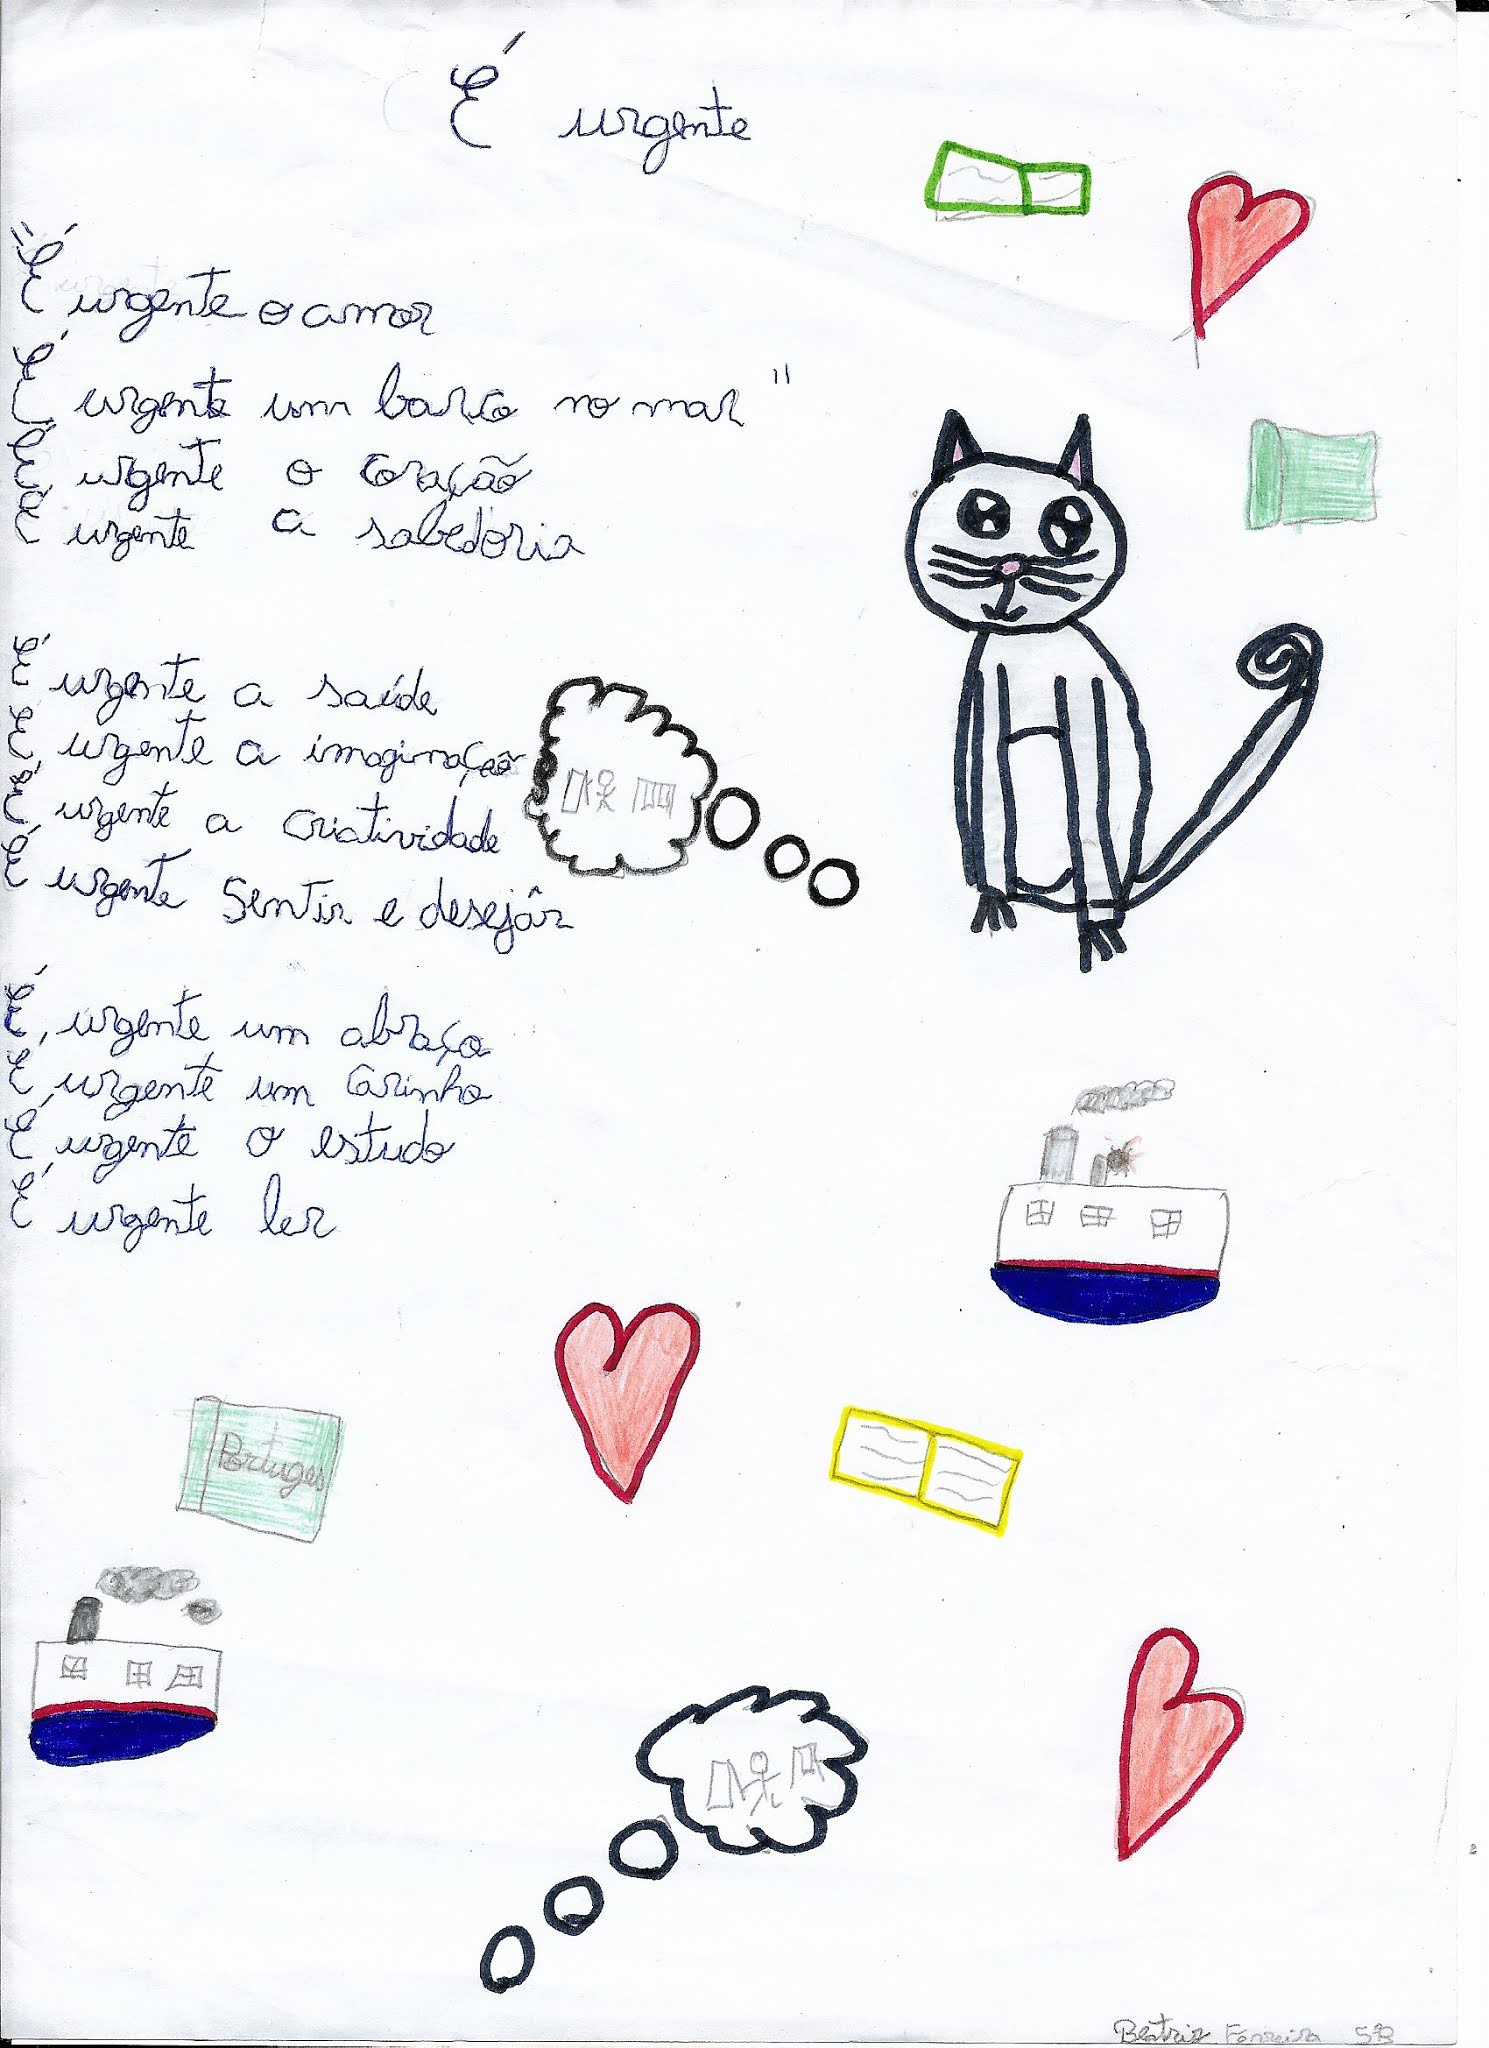 É urgente
"É urgente o amor
É urgente um barco no mar"
É urgente o coração
É urgente a sabedoria
É urgente a saúde
É urgente a imaginação
É urgente a criatividade
É urgente Sentir e desejâr
É, urgente um abraço
É, urgente um Carinho
É, urgente o estudo
É urgente ler
Portuges
Beatriz Ferreira 5ºB